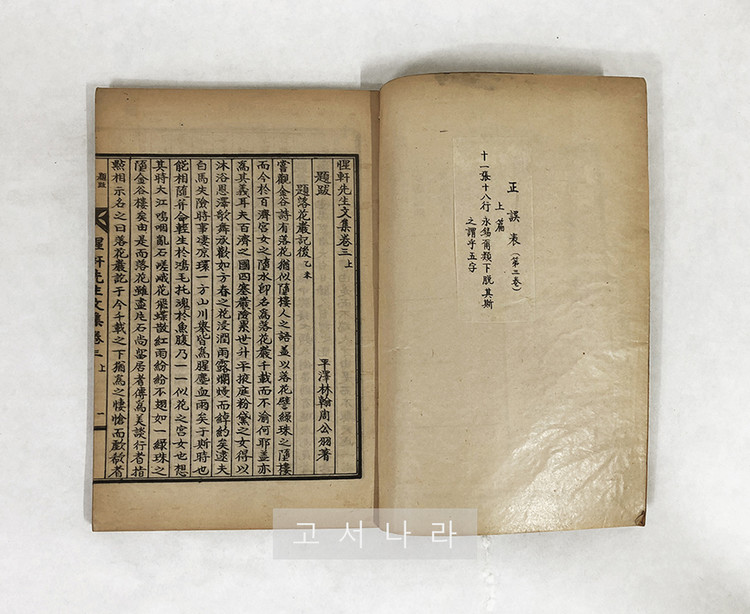 正誤表（第三巻）
上篇
十一張十八行 永錫爾類下脫其斯
之謂乎五字
惺軒先生文集卷三 上
題跋
平澤林翰周公羽著
題落花巖記後 乙未
嘗觀金谷詩有落花猶似墮樓人之語盖以落花譬綠珠之墮樓
而今於百濟宮女之墮水卽名爲落花巖千載而不渝何耶盖亦
爲其義耳夫百濟之國四塞巖險累世升平掖庭粉黛之女得以
沐浴恩澤歌舞承歡如方春之花浸潤雨露爛熳而綽約矣逮夫
白馬失險時事凄凉環一方山川擧皆爲腥塵血雨矣于斯時也
能相隨幷命輕生於鴻毛托魂於魚腹乃一一似花之宮女也想
其時大江嗚咽亂石嵯峨花飛蝶散紅雨紛紛不翅如一綠珠之
墮金谷樓矣由是而落花雖盡片石尙留居者傳爲美談行者指
點相示名之曰落花巖訖于今千載之下猶爲之悽愴而歔欷者
題跋
惺軒先生文集卷三 上
一
고서나라